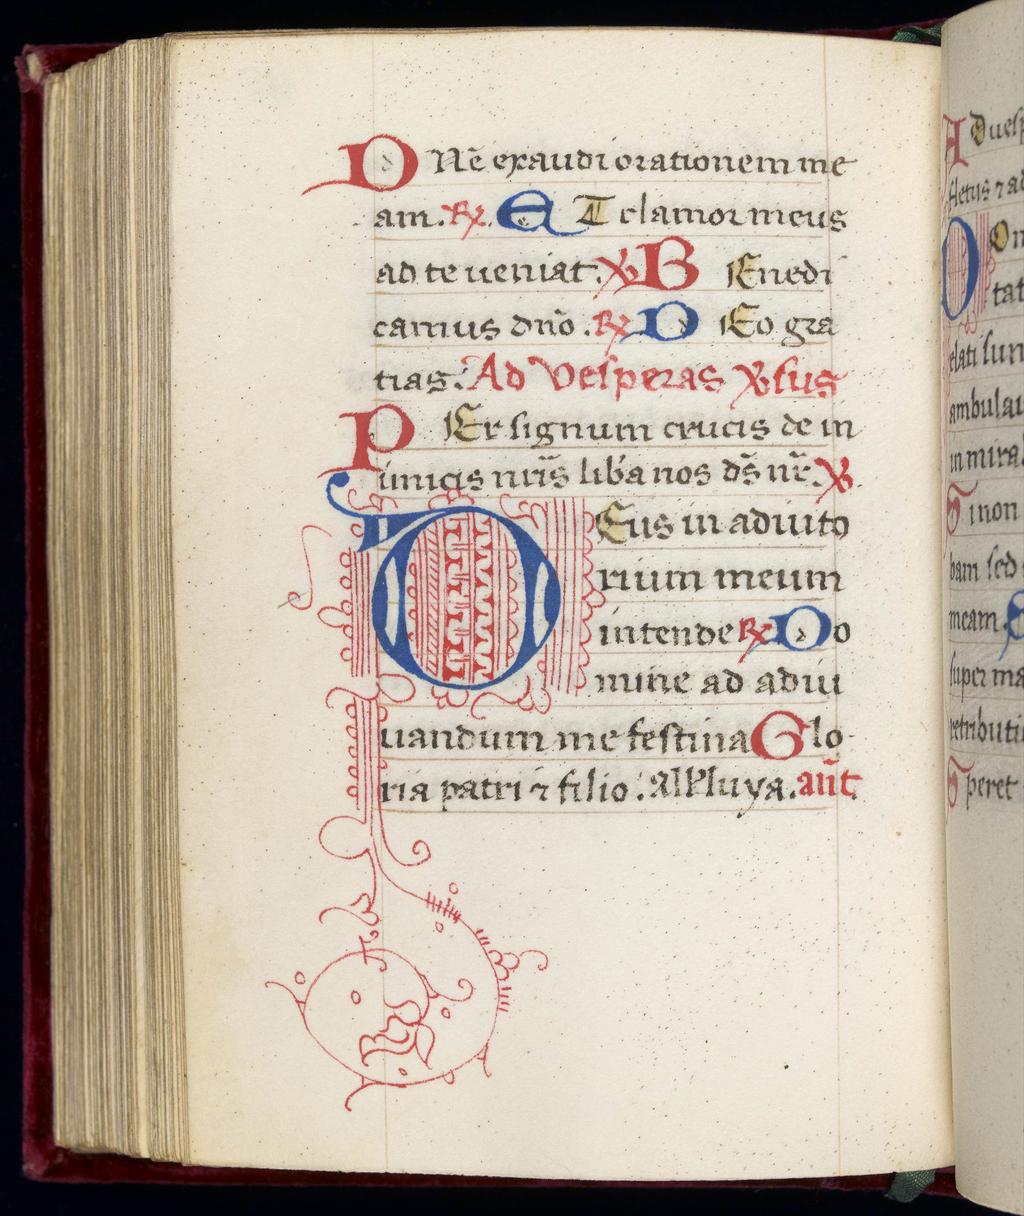 DNē exaudi orationem me
am. R̷ ET clamor meus
ad te ueniat. V̷ BEnedi
camus dn̄o. R̷ DEo gra
tias. Ad vesperas V̷sus
PEr signum crucis de in
imicis nr̄is liba nos ds̄ nr̄. V̷
DEus in adiuto
rium meum
intende R̷ Do
mine ad adiu
uandum me festina Glo
ria patri ⁊ filio. Alleluya. an̄t.
A Duesp
fletus ⁊ ad
On
tat
elati sun
ambulau
in mira
Si non
bam sed
meam
super ma
retributi
Speret